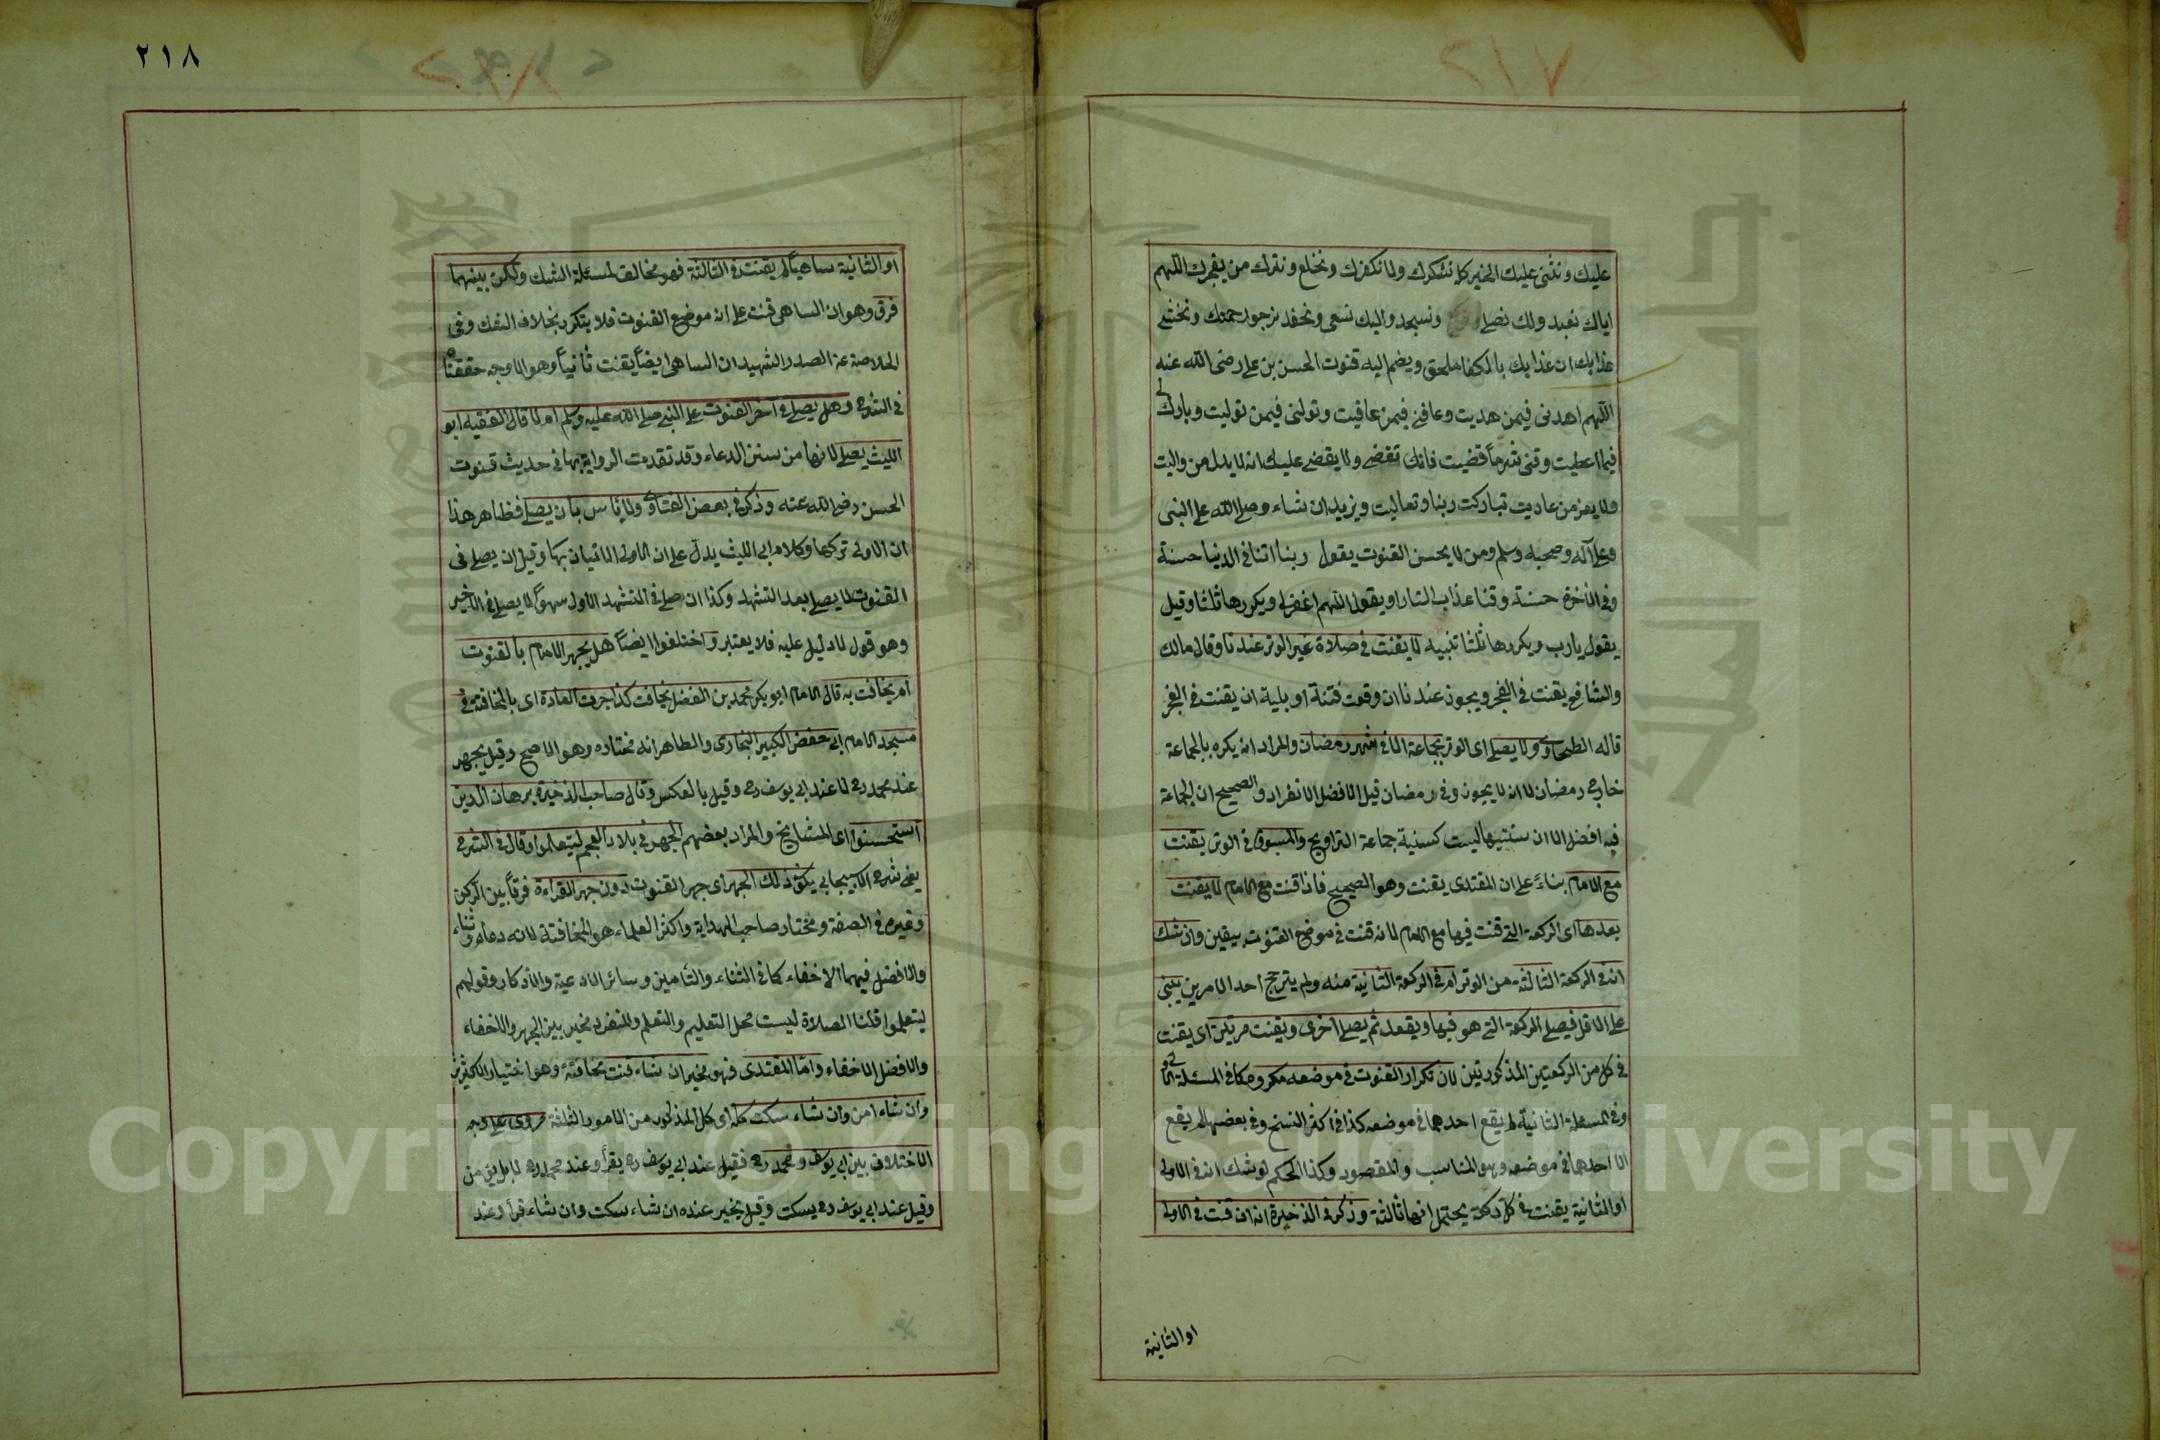 عليك ونثنى عليك الخير كله نشكرك ولا نكفرك ونخلع ونترك من يفجرك اللهم
اياك نعبد ولك نصلى ونسجد واليك نسعى ونحفد نرجو رحمتك ونخشى
عذابك ان عذابك بالكفار ملحق ويضم اليه قنوت الحسن بن على رضى الله عنه
اللهم اهدنى فيمن هديت وعافنى فيمن عافيت وتولنى فيمن توليت وبارك لى
فيما اعطيت وقنى شر ما قضيت فانك تقضى ولا يقضى عليك انه لا يذل من واليت
ولا يعز من عاديت تباركت ربنا وتعاليت ويزيد ان شاء وصلى الله على النبى
وعلى آله وصحبه وسلم ومن لا يحسن القنوت يقول ربنا اتنا فى الدنيا حسنة
وفى الآخرة حسنة وقنا عذاب النار او يقول اللهم اغفر لى ويكررها ثلثا وقيل
يقول يا رب ويكررها ثلثا تنبيه لا يقنت فى صلاة غير الوتر عندنا وقال مالك
والشافعى يقنت فى الفجر ويجوز عندنا ان وقعت فتنة او بلية ان يقنت فى الفجر
قاله الطحاوى ولا يصلى اى الوتر بجماعة الا فى شهر رمضان والمراد انه يكره بالجماعة
خارج رمضان لا انه لا يجوز وفى رمضان قيل الافضل الانفراد والصحيح ان الجماعة
فيه افضل الا ان سنتيها ليست كسنية جماعة التراويح والمسبوق فى الوتر يقنت
مع الامام بناءً على ان المقتدى يقنت وهو الصحيح فاذا قنت مع الامام لا يقنت
بعدها اى الركعة التى قنت فيها مع الامام لانه قنت فى موضع القنوت بيقين وان شك
انه فى الركعة الثالثة من الوتر ام فى الركعة الثانية منه ولم يترجح احد الامرين يبنى
على الاقل فيصلى الركعة التى هو فيها ويقعد ثم يصلى اخرى ويقنت مرتين اى يقنت
فى كل من الركعتين المذكورتين لان تكرار القنوت فى موضعه مكروه كما فى المسئلة الاولى
وفى المسئلة الثانية لم يقع احدهما فى موضعه كذا فى اكثر النسخ وفى بعضها لم يقع
الا احدهما فى موضعه وهو المناسب والمقصود وكذا الحكم لو شك انه فى الاولى
او الثانية يقنت فى كل ركعة يحتمل انها ثالثة وذكر فى الذخيرة انه ان قنت فى الاولى
او الثانية
٢١٨
او الثانية ساهياً لم يقنت فى الثالثة فهو مخالف لمسئلة الشك ولكن بينهما
فرق وهو ان الساهى قنت على انه موضع القنوت فلا يتكرر بخلاف الشك وفى
الخلاصة عن الصدر الشهيد ان الساهى ايضاً يقنت ثانياً وهو الاوجه حققناه
فى الشرح وهل يصلى فى آخر القنوت على النبى صلى الله عليه وسلم ام لا قال الفقيه ابو
الليث يصلى لانها من سنن الدعاء وقد تقدمت الرواية بها فى حديث قنوت
الحسن رضى الله عنه وذكر فى بعض الفتاوى ولا باس بان يصلى فظاهر هذا
ان الاولى تركها وكلام ابى الليث يدل على ان الاولى الاتيان بها وقيل ان يصلى فى
القنوت لا يصلى بعد التشهد وكذا ان صلى فى التشهد الاول سهواً لا يصلى فى الاخير
وهو قول لا دليل عليه فلا يعتبر واختلفوا ايضاً هل يجهر الامام بالقنوت
ام يخافت به قال الامام ابو بكر محمد بن الفضل يخافت كذا جرت العادة اى بالمخافتة فى
مسجد الامام ابى حفص الكبير البخارى والظاهر انه مختاره وهو الاصح وقيل يجهر
عند محمد رح لا عند ابى يوسف رح وقيل بالعكس وقال صاحب الذخيرة برهان الدين
استحسنوا اى المشايخ والمراد بعضهم الجهر فى بلاد العجم ليتعلموا وقال فى الشرح
يعنى شرح الاسبيجابى يكون ذلك الجهر اى جهر القنوت دون جهر القراءة فرقاً بين الركن
وغيره فى الصفة ومختار صاحب الهداية واكثر العلماء هو المخافتة لانه دعاء وثناء
والافضل فيهما الاخفاء كما فى الثناء والتأمين وسائر الادعية والاذكار وقولهم
ليتعلموا قلنا الصلاة ليست محل التعليم والتعلم والمنفرد مخير بين الجهر والاخفاء
والافضل الاخفاء واما المقتدى فهو مخير ان شاء قنت مخافتة وهو اختيار الاكثرين
وان شاء امن وان شاء سكت كله اى كل المذكور من الامور الثلثة مروى على وجه
الاختلاف بين ابى يوسف ومحمد رح فقيل عند ابى يوسف رح يقرأ وعند محمد رح لا بل يؤمن
وقيل عند ابى يوسف رح يسكت وقيل يخير عنده ان شاء سكت وان شاء قرأ وعند
Copyright © King Saud University